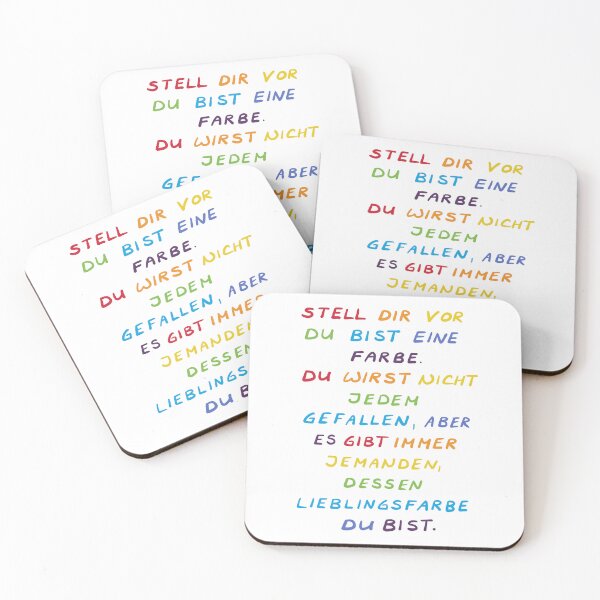 STELL DIR VOR
DU BIST EINE
FARBE.
DU WIRST NICHT
JEDEM
ABER
STELL DIR VOR
DU BIST EINE
FARBE.
DU WIRST NICHT
JEDEM
GEFALLEN, ABER
ES GIBT IMMER
JEMANDEN,
STELL DIR VOR
DU BIST EINE
FARBE.
DU WIRST NICHT
JEDEM
GEFALLEN, ABER
ES GIBT IMMER
JEMANDEN
DESSEN
DU
STELL DIR VOR
DU BIST EINE
FARBE.
DU WIRST NICHT
JEDEM
GEFALLEN, ABER
ES GIBT IMMER
JEMANDEN,
DESSEN
LIEBLINGSFARBE
DU BIST.